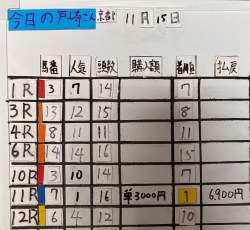 今日の戸崎さん 京都 11月15日
馬番 人気 頭数 購入額 着順 払戻
1R 3 7 14 7
3R 13 12 15 8
4R 8 11 11 11
6R 14 14 16 15
10R 3 10 14 7
11R 7 1 16 単3000円 1 6,900円
12R 6 4 12 10